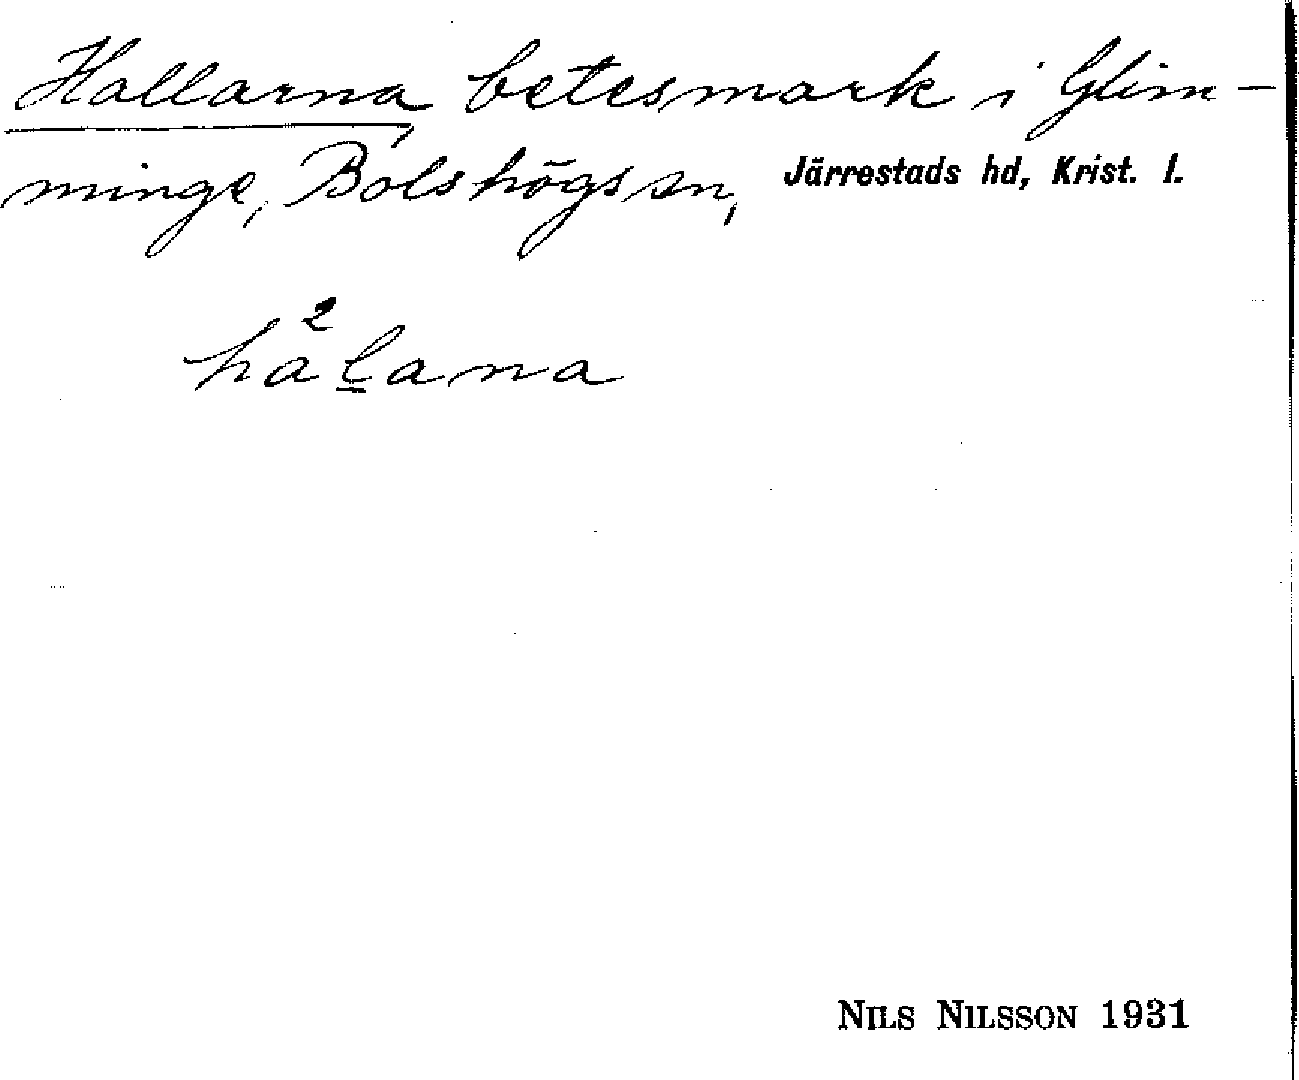 Hallarna, betesmark i Glim-
minge, Bolshögs sn, Järrestads hd, Krist. l.
2
hål̲ana
NILS NILSSON 1931